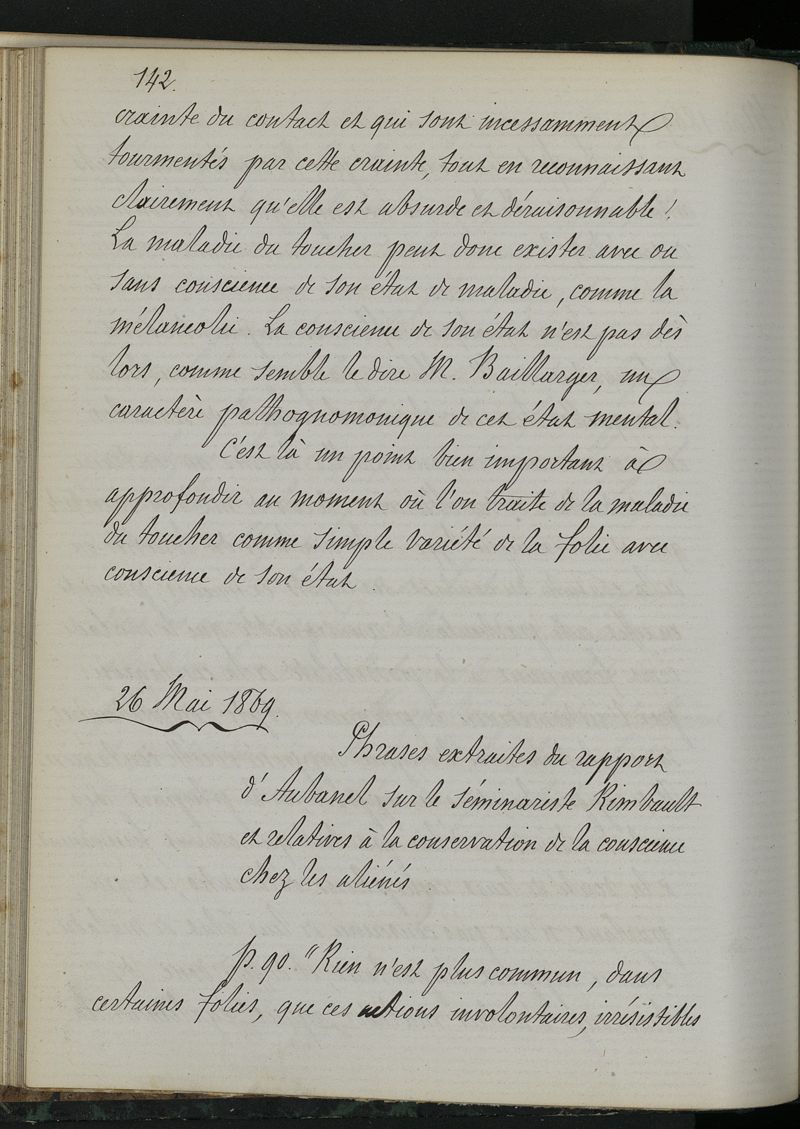 142.
crainte du contact et qui sont incessamment
tourmentés par cette crainte, tout en reconnaissant
clairement qu'elle est absurde et déraisonnable !
La maladie du toucher peut donc exister avec ou
sans conscience de son état de maladie, comme la
mélancolie. La conscience de son état n'est pas dès
lors, comme semble le dire M. Baillarger, un
caractère pathognomonique de cet état mental.
C'est là un point bien important à
approfondir au moment où l'on traite de la maladie
du toucher comme simple variété de la folie avec
conscience de son état.
26 Mai 1869.
Phrases extraites du rapport
d'Aubanel sur le séminariste Rimbault
et relatives à la conservation de la conscience
chez les aliénés
p. 90. "Rien n'est plus commun, dans
certaines folies, que ces actions involontaires, irrésistibles